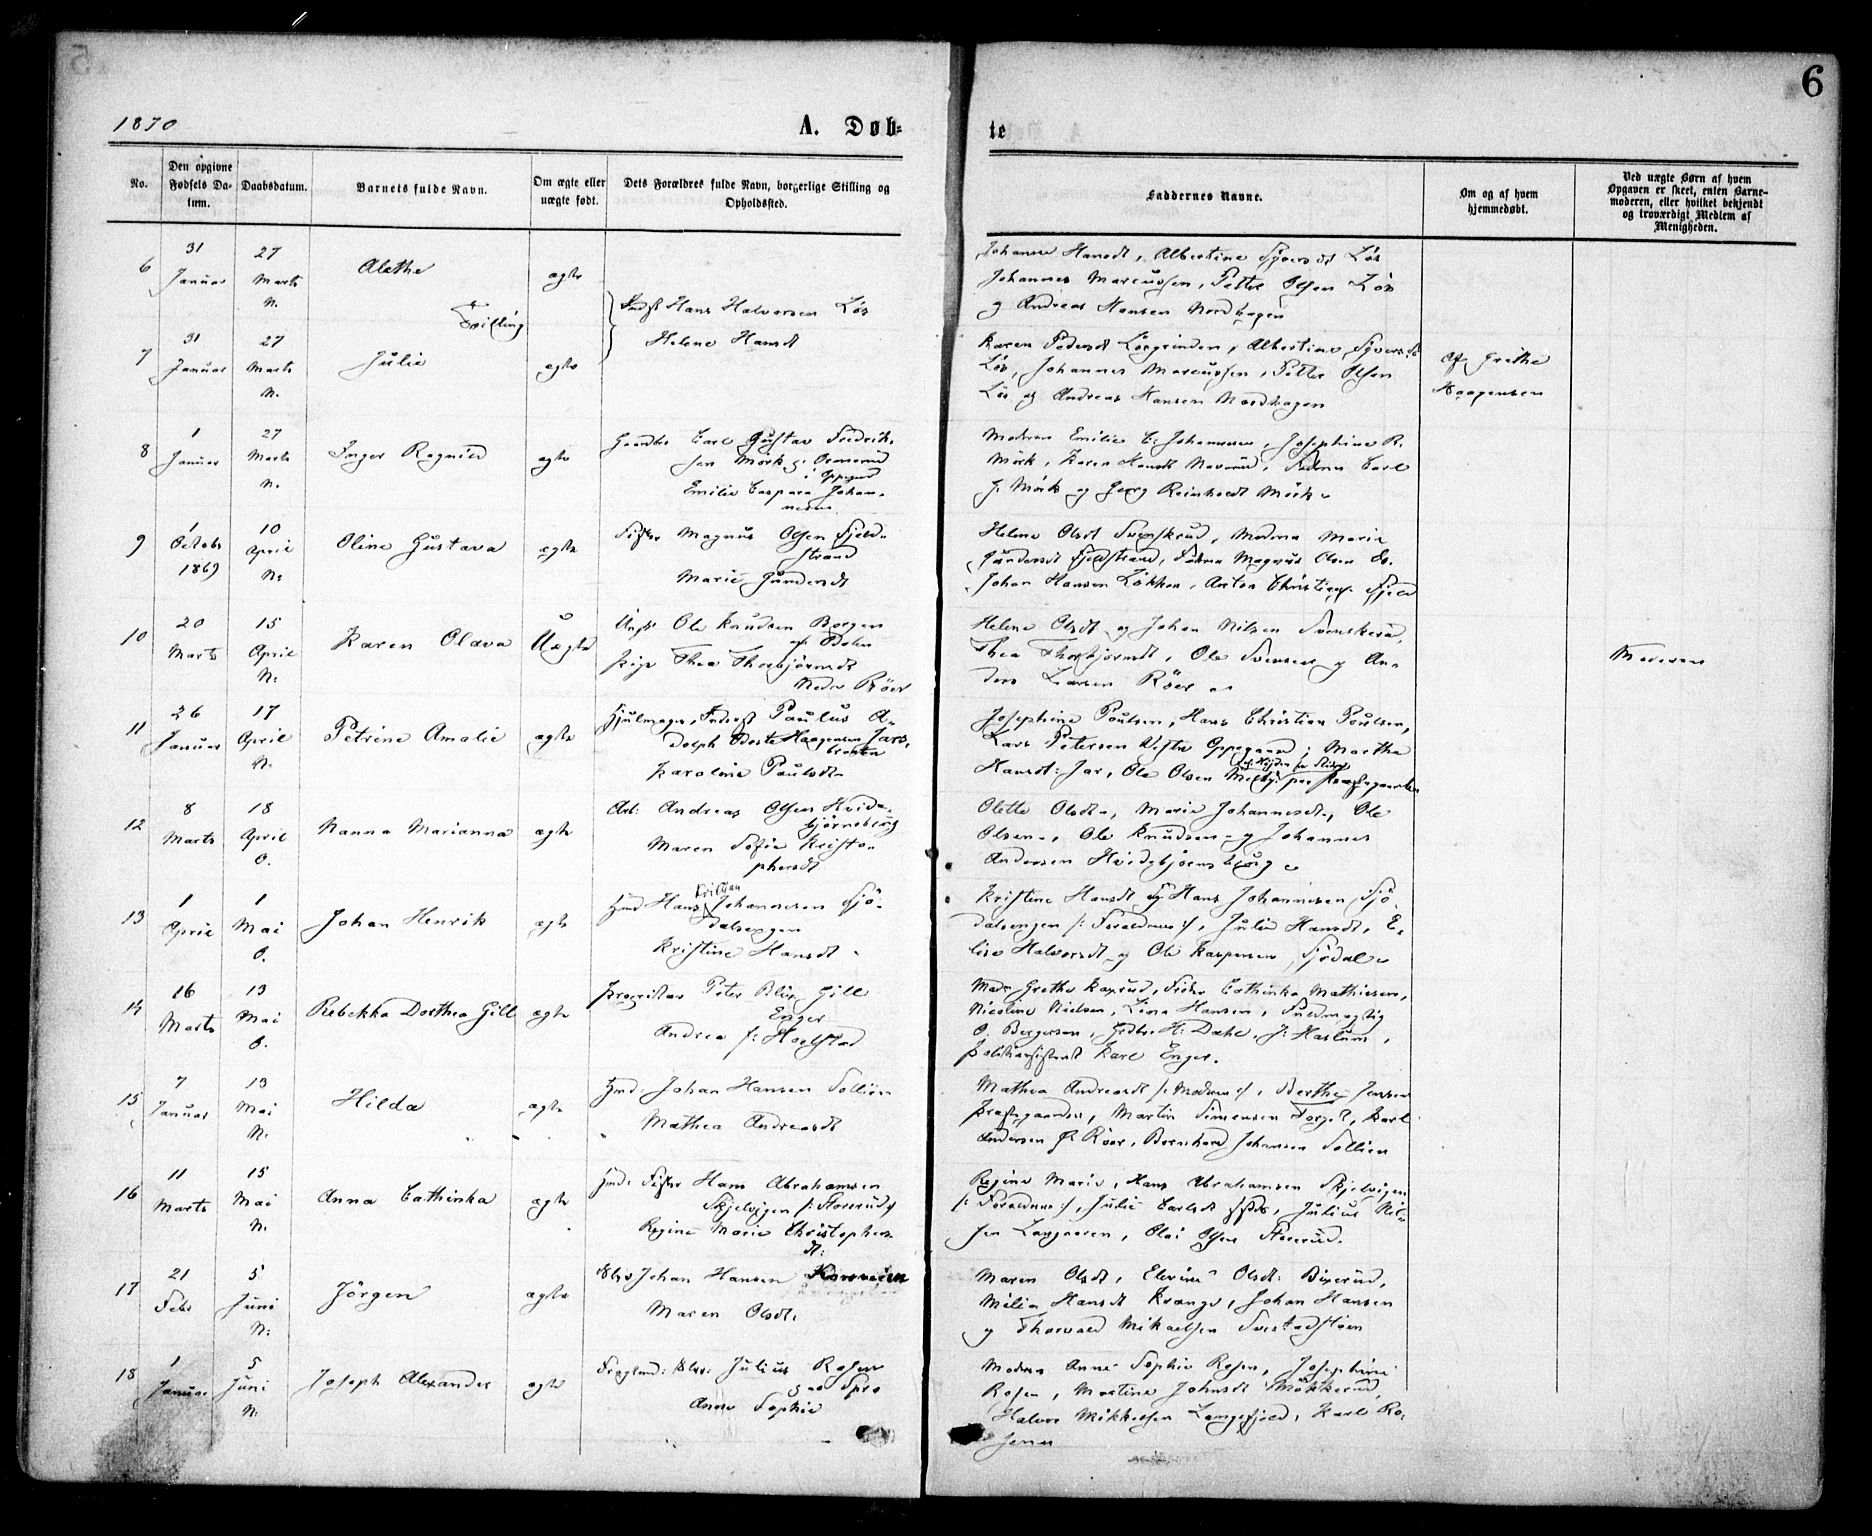 6
1870
A. Døb-
te
No.
Den opgivne Fødsels Da-
tum.
Daabsdatum.
Barnets fulde Navn.
Om ægte eller
uægte født.
Dets Forældres fulde Navn, borgerlige Stilling og
Opholdssted.
Faddernes Navne.
Om og af hvem
hjemmedøbt.
Ved uægte Børn af hvem
Opgaven er skeet, enten Barne-
moderen, eller hvilket bekjendt
og troværdigt Medlem af
Menigheden.
6
31
Januar
27
Marts
N.
Alethe
ægte
Tvilling
Hans Halvorsen Løs
Helene Hansdt
Johanne Hansdt, Albertine Syversdt Løs
Johannes Marcussen, Petter Olsen Løs
og Andreas Hansen Nordhagen
7
31
Januar
27
Marts
N.
Julie
ægte
Karen Pedersdt Løsgrinden, Albertine Syversdt
Løs, Johannes Marcussen, Petter Olsen
Løs og Andreas Hansen Nordhagen
Af Grethe
Haagensen
8
1
Januar
27
Marts
N.
Inger Ragnild
ægte
Gaardbr Carl Gustav Fredrik-
sen Mørk
i Oppegd
Emilie Caspara Johan-
nesen
Modren Emilie C. Johannesen, Josephine R.
Mörk, Karen Hansdt, Fadren Carl
G. Mörk og Georg Reinholdt Mörk
9
1
Octobr
1869
10
April
N:
Oline Gustava
ægte
Fisker Magnus Olsen Fjeld-
strand
Marie Gundersdt
Helene Olsdt Svenskrud, Modren Marie
Gundersdt Fjeldstrand, Fadren Magnus Olsen
Johan Hansen Løkken, Anton Christians. Fjeld
10
20
Marts
15
April
N:
Karen Olava
Uægte
Ungk Ole Knudsen Borgen
Pige Thea Thorbjørnsdt
Nedre Röer
Helene Olsdt og Johan Nilsen Svenskerud,
Thea Thorbjørnsdt, Ole Svensen og An-
ders Larsen Röer
Moderen
11
26
Januar
17
April
N.
Petrine Amalie
ægte
Hjulmager, Inderst Paulus A-
dolph Haagensen Jars-
braaten
Karoline Paulsdt
Josephine Poulsen, Hans Christian Poulsen,
Lars Petersen Vestre Oppegaard, Martha
Hansdt: Jar, Ole Olsen
12
8
Marts
18
April
O.
Nanna Marianna
ægte
Arb: Andreas Olsen Hvide-
bjørnsborg
Maren Sofie Kristo-
phersdt
Olette Olsdt, Marie Johannesdt, Ole
Olsen, Ole Knudsen og Johannes
Andersen Hvidebjørnsborg
13
1
April
1
Mai
O.
Johan Henrik
ægte
Hmd Hans Kristian Johannesen Sjö-
dalsengen
Kristine Hansdt
Kristine Hansdt og Hans Johannesen Sjö-
dalsengen /: Forældrene :/, Julie Hansdt, E-
lise Halvorsdt og Ole Kaspersen Sjödal
14
16
Marts
13
Mai
O.
Rebekka Dorthea Gill
ægte
Proprietær Peter Gill
Enger
Andrea f: Hoelstad
Mad: Grethe Kaxrud, Cathinka Mathiesen,
Nicoline Nielsen, Lina Hansen, Fuldmægtig
O. Bergersen, Grdbr. H: Dahl, J: Haslum,
Politiassistent Karl Enger.
15
7
Januar
13
Mai
N.
Hilda
ægte
Hmd: Johan Hansen Sollien
Mathea Andreasdt
Mathea Andreasdt /: Modren :/, Berthe Jensen
Præstegaarden, Martin Simensen Torget, Karl
Andersen Röer, Bernhard Johansen Sollien
16
11
Marts
15
Mai
N.
Anna Cathinka
ægte
Hmd: Fisker Hans Abrahamsen
Skjelvigen /: Storerud :/
Regine Marie Christophers-
dt:
Regine Marie, Hans Abrahamsen Skjelvigen
/: Forældrene :/, Julie Carlsdt, Julius Nil-
sen Langaaren, Olai Olsen Storerud.
17
21
Febr
5
Juni
N:
Jörgen
ægte
Johan Hansen Kornveien
Maren Olsdt:
Maren Olsdt, Elevine Olsdt: Bixerud,
Milia Hansdt Krange, Johan Hansen
og Thorvald Mikaelsen Svestadstöen
18
1
Januar
5
Juni
N:
Joseph Alexander
ægte
Julius Rosen
Spro
Anne Sophie
Modren Anne Sophie Rosen, Josephine
Rosen, Martine Johnsdt Mökkerud,
Halvor Mikkelsen Langefjeld, Karl Ro-
senes